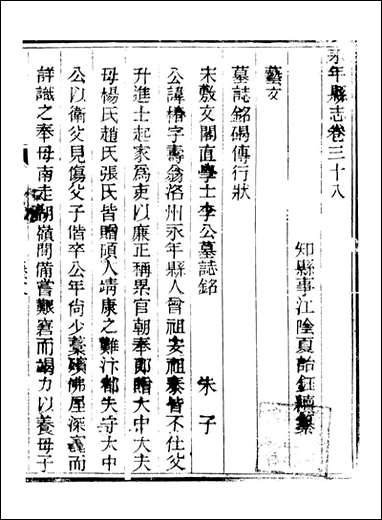 永年縣志卷三十八
知縣事江陰夏詒鈺續纂
藝文
墓誌銘碣傳行狀
宋敷文閣直學士李公墓誌銘 朱子
公諱椿字壽翁洺州永年縣人曾祖安祖泰皆不仕父
升進士起家為吏以廉正稱累官朝奉郎贈大中大夫
母楊氏趙氏張氏皆贈碩人靖康之難汴都失守大中
公以衛父見傷父子偕卒公年尚少藁殯佛屋深竁而
詳識之奉母南走湖嶺間備嘗艱窘而竭力以養母子